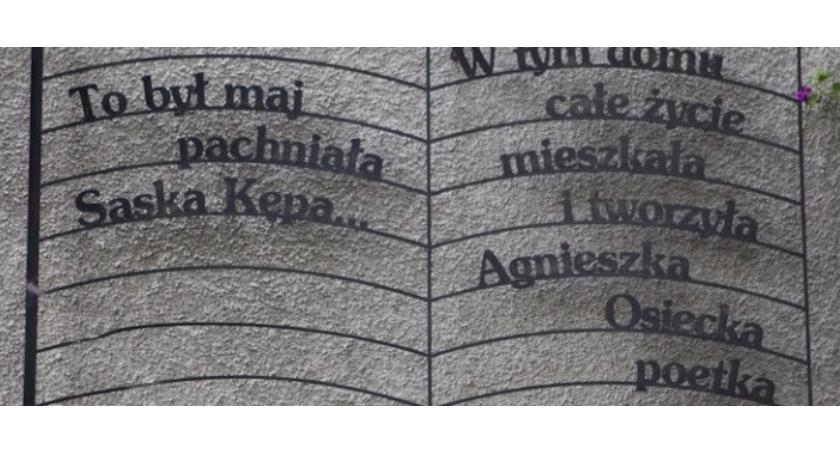 To był maj
pachniała
Saska Kępa...
W tym domu
całe życie
mieszkała
i tworzyła
Agnieszka
Osiecka
poetka